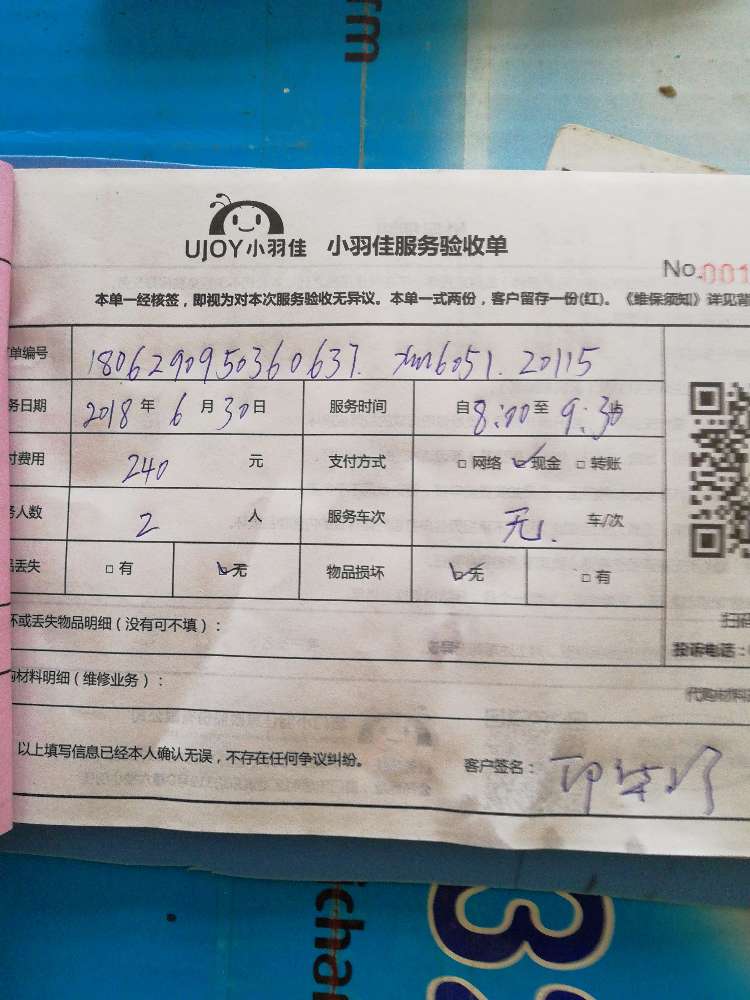 rm
UJOY小羽佳 小羽佳服务验收单
No.001
本单一经核签，即视为对本次服务验收无异议。本单一式两份，客户留存一份(红)。《维保须知》详见背
单编号 1806290950360637. xm6051. 20115
务日期 2018 年 6 月 30 日 服务时间 自 8:00 至 9:30
付费用 240 元 支付方式 □ 网络 ☑ 现金 □ 转账
务人数 2 人 服务车次 无. 车/次
品丢失 □ 有 ☑ 无 物品损坏 ☑ 无 □ 有
坏或丢失物品明细（没有可不填）：
扫码
投诉电话：
购材料明细（维修业务）：
代购材料
以上填写信息已经本人确认无误，不存在任何争议纠纷。 客户签名：
ichan
32